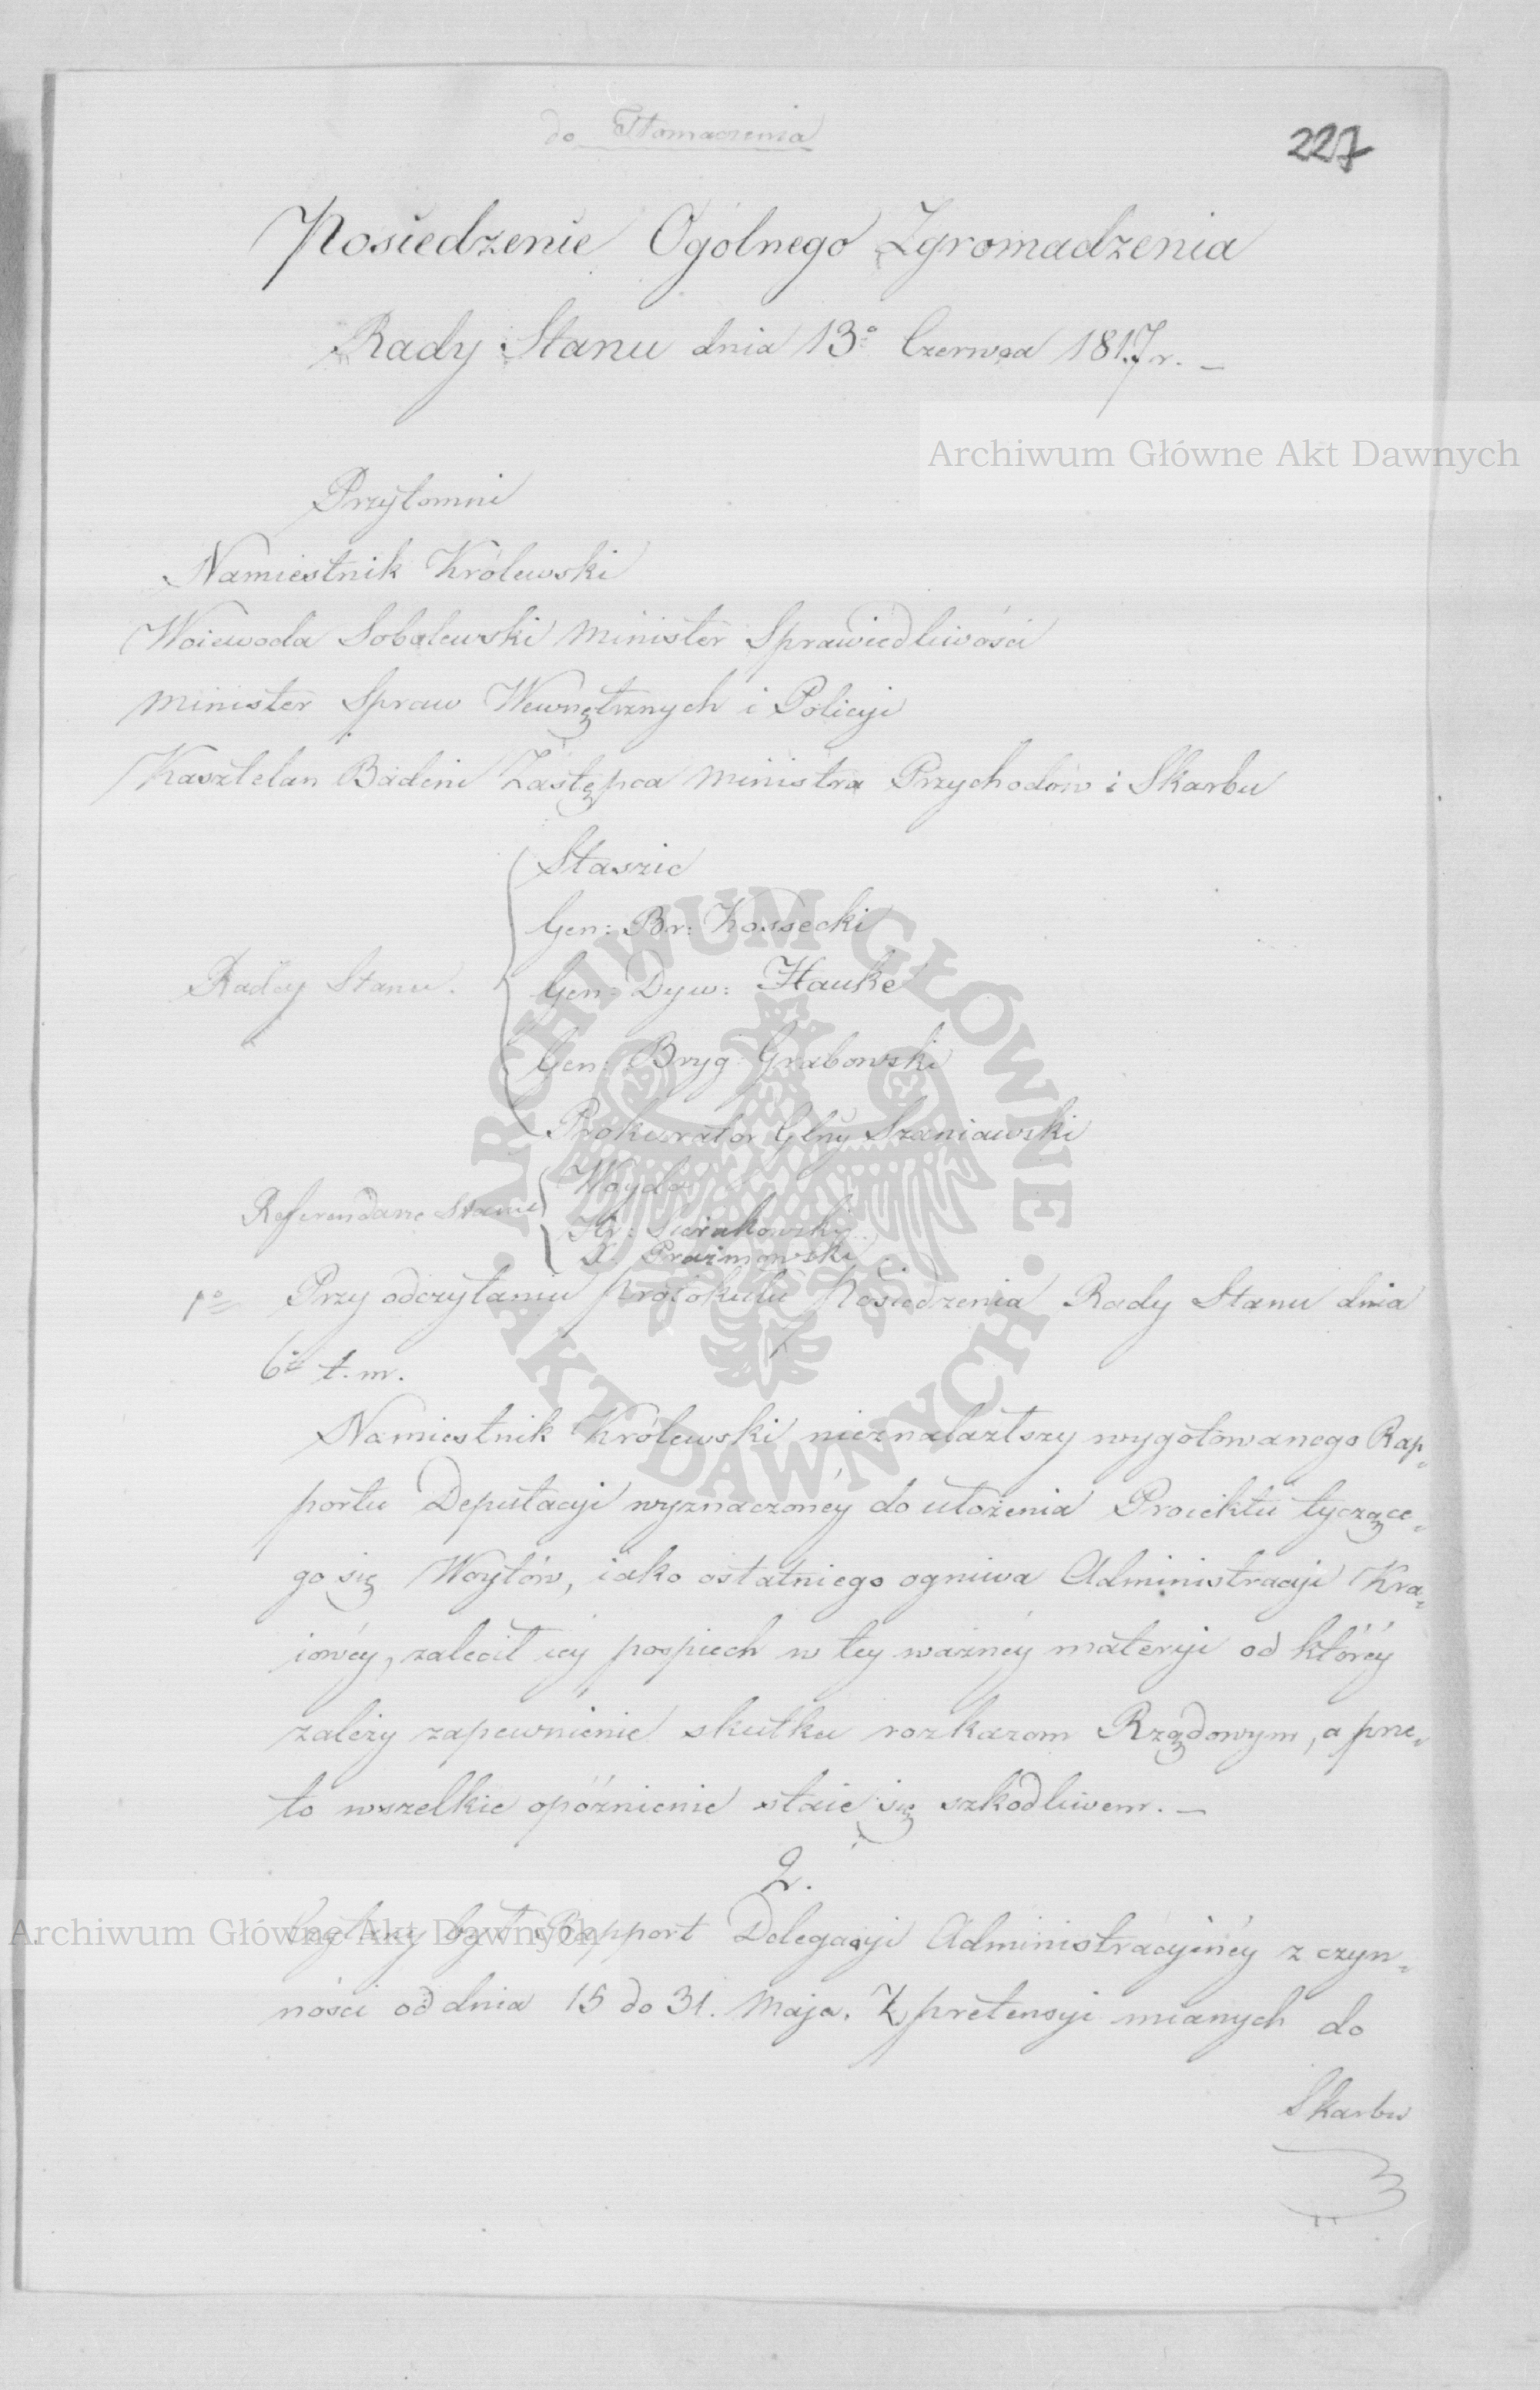 do Tłomaczenia
227
Posiedzenie Ogólnego Zgromadzenia
Rady Stanu dnia 13º Czerwca 1817 r. —
Archiwum Główne Akt Dawnych
Przytomni
Namiestnik Królewski
Woiewoda Sobolewski Minister Sprawiedliwości
Minister Spraw Wewnętrznych i Policyi
Kasztelan Badeni Zastępca Ministra Przychodów i Skarbu
Radcy Stanu.
Staszic
Gen: Br: Kossecki
Gen: Dyw: Hauke
Gen: Bryg Grabowski
Prokurator Glny Szaniawski
Referendarze Stanu
Woyda
Hr: Sierakowski
X. Prażmowski
ARCHIWUM GŁÓWNE · AKT DAWNYCH ·
1º Przy odczytaniu protokułu Posiedzenia Rady Stanu dnia
6º t. m.
Namiestnik Królewski nieznalazłszy wygotowanego Rap=
portu Deputacyi wyznaczonéy do ułożenia Proiektu tyczące=
go się Woytów, iako ostatniego ogniwa Administracyi Kra=
iowéy, zalecił iey pospiech w tey ważnéy materyi od któréy
zależy zapewnienie skutku rozkazom Rządowym, a prze=
to wszelkie opóźnienie staie się szkodliwem. —
2.
Czytany był Rapport Delegacyi Administracyinéy z czyn=
ności od dnia 15 do 31. Maja. Z pretensyi mianych do
Archiwum Główne Akt Dawnych
Skarbu